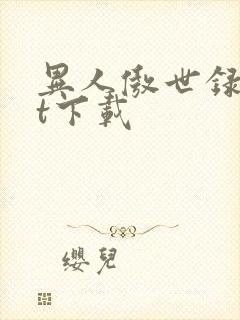 異人傲世録
t下載
纓兒